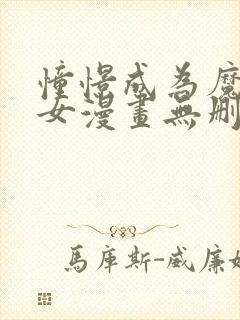 憧憬成為魔
女漫畫無刪
馬庫斯-威廉姆